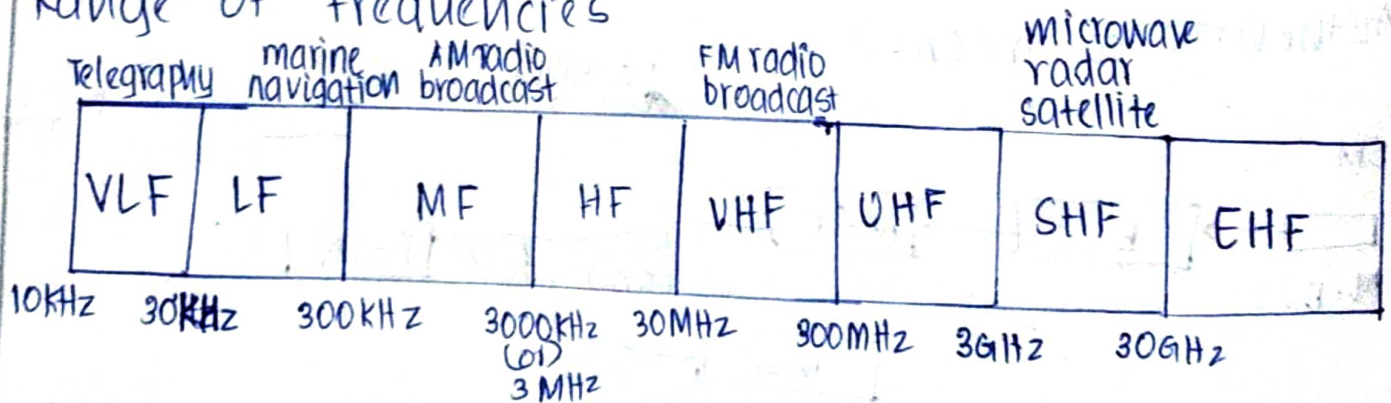 Range of frequencies
Telegraphy marine navigation AM radio broadcast FM radio broadcast microwave radar satellite
VLF LF MF HF VHF UHF SHF EHF
10KHz 30KHz 300KHz 3000KHz (or) 3 MHz 30MHz 300MHz 3GHz 30GHz